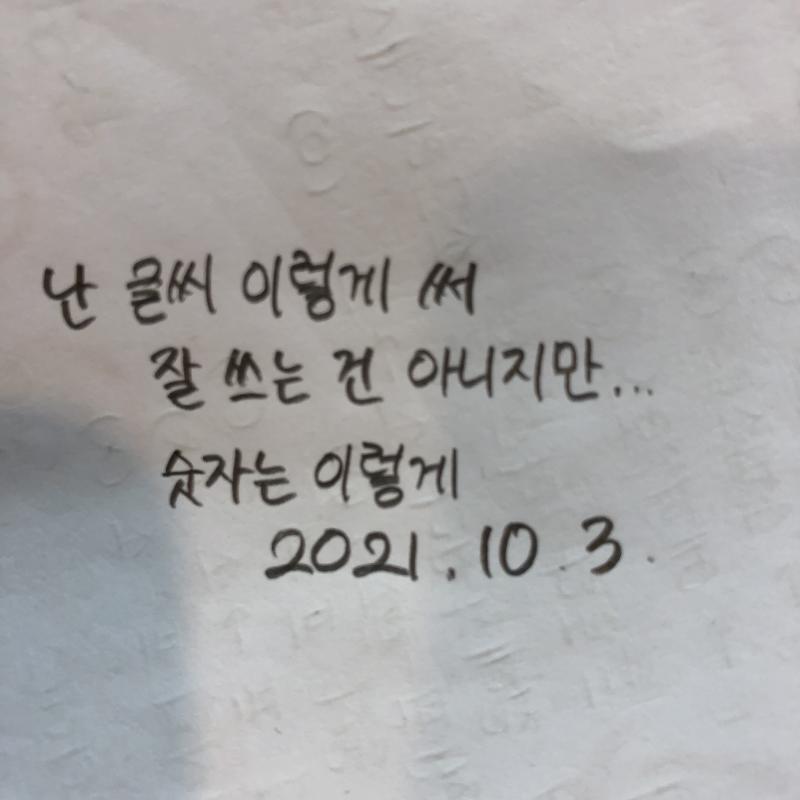 난 글씨 이렇게 써
잘 쓰는 건 아니지만...
숫자는 이렇게
2021. 10. 3.